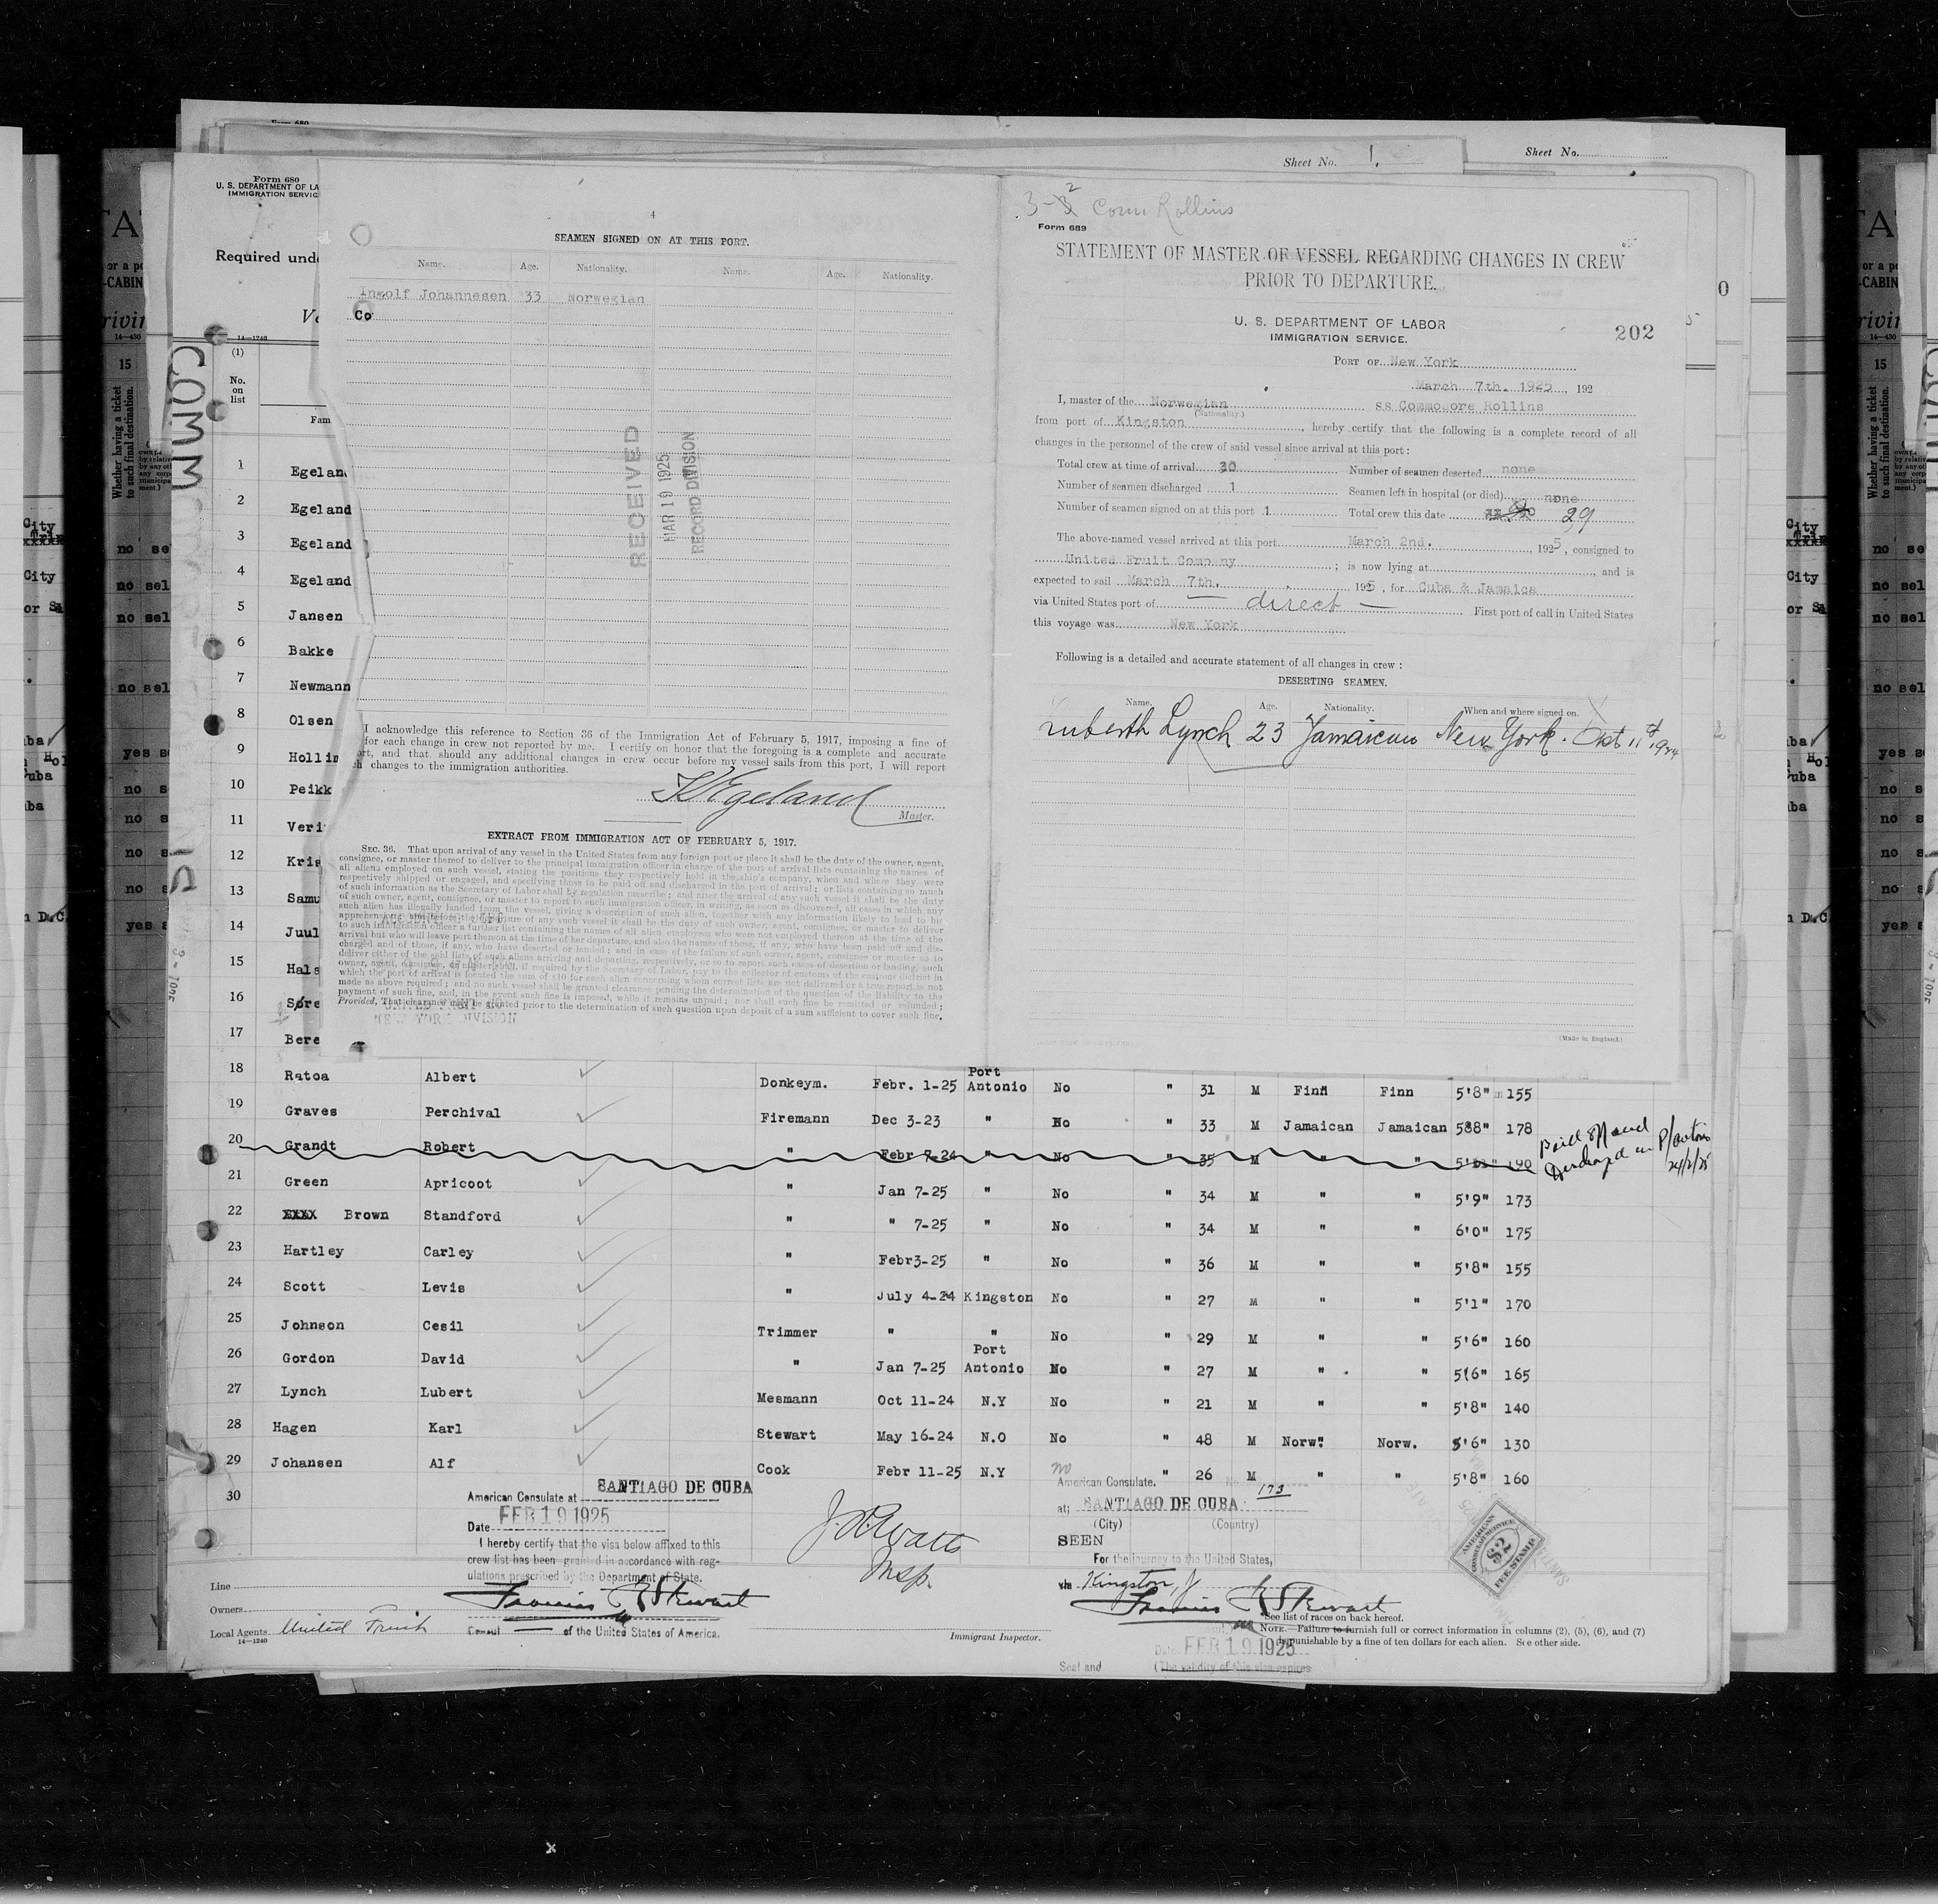 Form 680
Sheet No. 1.
Sheet No.
Form 680
U. S. DEPARTMENT OF LA
IMMIGRATION SERVIC
Required unde
14—1240
(1)
No.
on
list
Fam
COMM
1 Egelan
2 Egeland
3 Egeland
4 Egeland
5 Jansen
6 Bakke
7 Newmann
8 Olsen
9 Hollin
10 Peikk
11 Veri
12 Kris
13 Samu
14 Juul
15 Hals
16 Søre
17 Bere
4
SEAMEN SIGNED ON AT THIS PORT.
Name. Age. Nationality. Name. Age. Nationality.
Ingolf Johannesen 33 Norwegian
Co
RECEIVED
MAR 19 1925
RECORD DIVISION
I acknowledge this reference to Section 36 of the Immigration Act of February 5, 1917, imposing a fine of
for each change in crew not reported by me. I certify on honor that the foregoing is a complete and accurate
ort, and that, should any additional changes in crew occur before my vessel sails from this port, I will report
h changes to the immigration authorities.
K Egeland
Master.
EXTRACT FROM IMMIGRATION ACT OF FEBRUARY 5, 1917.
SEC. 36. That upon arrival of any vessel in the United States from any foreign port or place it shall be the duty of the owner, agent,
consignee, or master thereof to deliver to the principal immigration officer in charge of the port of arrival lists containing the names of
all aliens employed on such vessel, stating the positions they respectively hold in the ship's company, when and where they were
respectively shipped or engaged, and specifying those to be paid off and discharged in the port of arrival; or lists containing so much
of such information as the Secretary of Labor shall by regulation prescribe; and after the arrival of any such vessel it shall be the duty
of such owner, agent, consignee, or master to report to such immigration officer, in writing, as soon as discovered, all cases in which any
such alien has illegally landed from the vessel, giving a description of such alien, together with any information likely to lead to his
apprehension; and before the departure of any such vessel it shall be the duty of such owner, agent, consignee, or master to deliver
to such immigration officer a further list containing the names of all alien employees who were not employed thereon at the time of the
arrival but who will leave port thereon at the time of her departure, and also the names of those, if any, who have been paid off and dis-
charged and of those, if any, who have deserted or landed; and in case of the failure of such owner, agent, consignee, or master so to
deliver either of the said lists of such aliens arriving and departing, respectively, or so to report such cases of desertion or landing, such
owner, agent, consignee, or master shall, if required by the Secretary of Labor, pay to the collector of customs of the customs district in
which the port of arrival is located the sum of $10 for each alien concerning whom correct lists are not delivered or a true report is not
made as above required; and no such vessel shall be granted clearance pending the determination of the question of the liability to the
payment of such fine, and, in the event such fine is imposed, while it remains unpaid; nor shall such fine be remitted or refunded;
Provided, That clearance may be granted prior to the determination of such question upon deposit of a sum sufficient to cover such fine.
NEW YORK DIVISION
3-2 Com Rollins
Form 689
STATEMENT OF MASTER OF VESSEL REGARDING CHANGES IN CREW
PRIOR TO DEPARTURE.
U. S. DEPARTMENT OF LABOR
IMMIGRATION SERVICE.
202
PORT OF New York
March 7th. 1925, 192
I, master of the Norwegian ss Commodore Rollins
(Nationality.)
from port of Kingston, hereby certify that the following is a complete record of all
changes in the personnel of the crew of said vessel since arrival at this port:
Total crew at time of arrival 30 Number of seamen deserted none
Number of seamen discharged 1 Seamen left in hospital (or died) none
Number of seamen signed on at this port 1 Total crew this date 29
The above-named vessel arrived at this port March 2nd. 1925, consigned to
United Fruit Company; is now lying at, and is
expected to sail March 7th. 1925, for Cuba & Jamaica
via United States port of — direct — First port of call in United States
this voyage was New York
Following is a detailed and accurate statement of all changes in crew:
DESERTING SEAMEN.
Name. Age. Nationality. When and where signed on.
Luberth Lynch 23 Jamaican New York. Okt 11th 1924
(Made in England.)
18 Ratoa Albert Donkeym. Febr. 1-25 Port Antonio No " 31 M Finn Finn 5'8" 155
19 Graves Perchival Firemann Dec 3-23 " No " 33 M Jamaican Jamaican 588" 178
20 Grandt Robert " Febr 7-24 No " 35 M " " 190
Paid off and
discharged in P/Antonio
24/2/25
21 Green Apricoot " Jan 7-25 " No " 34 M " " 5'9" 173
22 XXXX Brown Standford " " 7-25 " No " 34 M " " 6'0" 175
23 Hartley Carley " Febr3-25 " No " 36 M " " 5'8" 155
24 Scott Levis " July 4-24 Kingston No " 27 M " " 5'1" 170
25 Johnson Cesil Trimmer " " No " 29 M " " 5'6" 160
26 Gordon David " Jan 7-25 Port Antonio No " 27 M " " 5'6" 165
27 Lynch Lubert Mesmann Oct 11-24 N.Y No " 21 M " " 5'8" 140
28 Hagen Karl Stewart May 16-24 N.O No " 48 M Norw. Norw. 5'6" 130
29 Johansen Alf Cook Febr 11-25 N.Y no " 26 M " " 5'8" 160
30
American Consulate at SANTIAGO DE CUBA
Date FEB 19 1925
I hereby certify that the visa below affixed to this
crew list has been granted in accordance with reg-
ulations prescribed by the Department of State.
Francis R Stewart
Consul of the United States of America.
J. R. Watts
Insp.
Immigrant Inspector.
American Consulate. No. 173
at; SANTIAGO DE CUBA
(City) (Country)
SEEN
For the journey to the United States,
via Kingston, J
Francis R Stewart
Date FEB 19 1925
Seal and (The validity of this visa expires
AMERICAN CONSULAR SERVICE $2 FEE STAMP
Line
Owners
Local Agents United Fruit
14—1240
*See list of races on back hereof.
NOTE.—Failure to furnish full or correct information in columns (2), (5), (6), and (7)
is punishable by a fine of ten dollars for each alien. See other side.